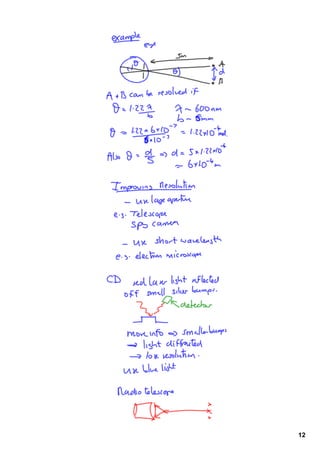 example
eye
5m
θ
θ
A
d
B
A + B can be resolved if
θ = 1.22 λ / b
λ ~ 600nm
b ~ 5mm
θ ≈ 1.22 × 6×10⁻⁷ / 5×10⁻³ = 1.22×10⁻⁴ rad.
Also θ = d/5 => d = 5 × 1.22×10⁻⁴
~ 6×10⁻⁴ m
Improving Resolution
- use large aperture
e.g. Telescope
Spy camera
- use short wavelength
e.g. electron microscope
CD red laser light reflected
off small silver bumps.
detector
more info => smaller bumps
→ light diffracted
→ low resolution.
use blue light
Radio telescope
12